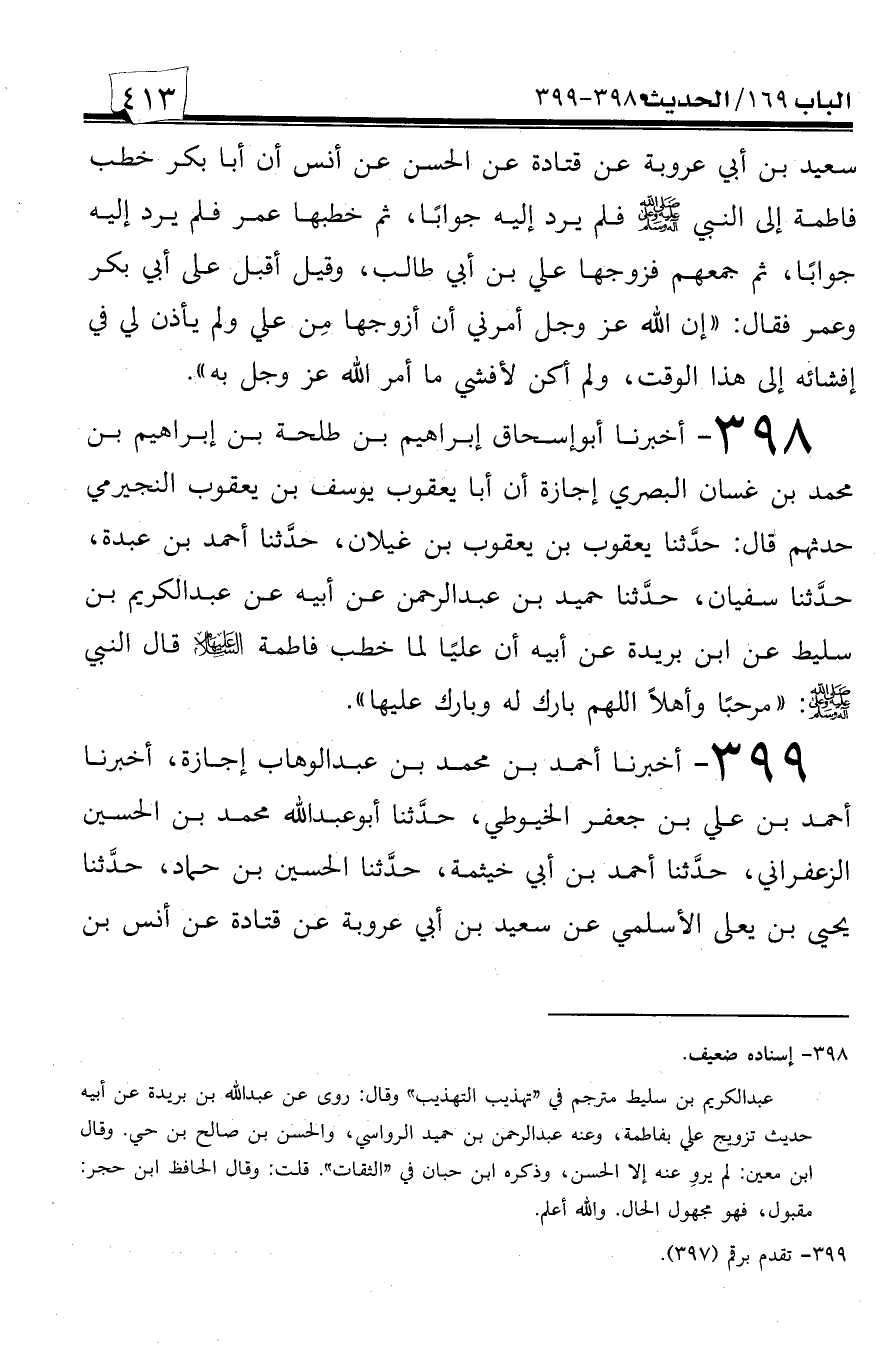 الباب ١٦٩/ الحديث ٣٩٨-٣٩٩
٤١٣
سعيد بن أبي عروبة عن قتادة عن الحسن عن أنس أن أبا بكر خطب
فاطمة إلى النبي ﷺ فلم يرد إليه جوابًا، ثم خطبها عمر فلم يرد إليه
جوابًا، ثم جمعهم فزوجها علي بن أبي طالب، وقيل أقبل على أبي بكر
وعمر فقال: «إن الله عز وجل أمرني أن أزوجها مِن علي ولم يأذن لي في
إفشائه إلى هذا الوقت، ولم أكن لأفشي ما أمر الله عز وجل به».
٣٩٨- أخبرنا أبوإسحاق إبراهيم بن طلحة بن إبراهيم بن
محمد بن غسان البصري إجازة أن أبا يعقوب يوسف بن يعقوب النجيرمي
حدثهم قال: حدَّثنا يعقوب بن يعقوب بن غيلان، حدَّثنا أحمد بن عبدة،
حدَّثنا سفيان، حدَّثنا حميد بن عبدالرحمن عن أبيه عن عبدالكريم بن
سليط عن ابن بريدة عن أبيه أن عليًا لما خطب فاطمة عليها السلام قال النبي
ﷺ: «مرحبًا وأهلاً اللهم بارك له وبارك عليها».
٣٩٩- أخبرنا أحمد بن محمد بن عبدالوهاب إجازة، أخبرنا
أحمد بن علي بن جعفر الخيوطي، حدَّثنا أبوعبدالله محمد بن الحسين
الزعفراني، حدَّثنا أحمد بن أبي خيثمة، حدَّثنا الحسين بن حماد، حدَّثنا
يحيى بن يعلى الأسلمي عن سعيد بن أبي عروبة عن قتادة عن أنس بن
٣٩٨- إسناده ضعيف.
عبدالكريم بن سليط مترجم في «تهذيب التهذيب» وقال: روى عن عبدالله بن بريدة عن أبيه
حديث تزويج علي بفاطمة، وعنه عبدالرحمن بن حميد الرواسي، والحسن بن صالح بن حي. وقال
ابن معين: لم يروِ عنه إلا الحسن، وذكره ابن حبان في «الثقات». قلت: وقال الحافظ ابن حجر:
مقبول، فهو مجهول الحال. والله أعلم.
٣٩٩- تقدم برقم (٣٩٧).